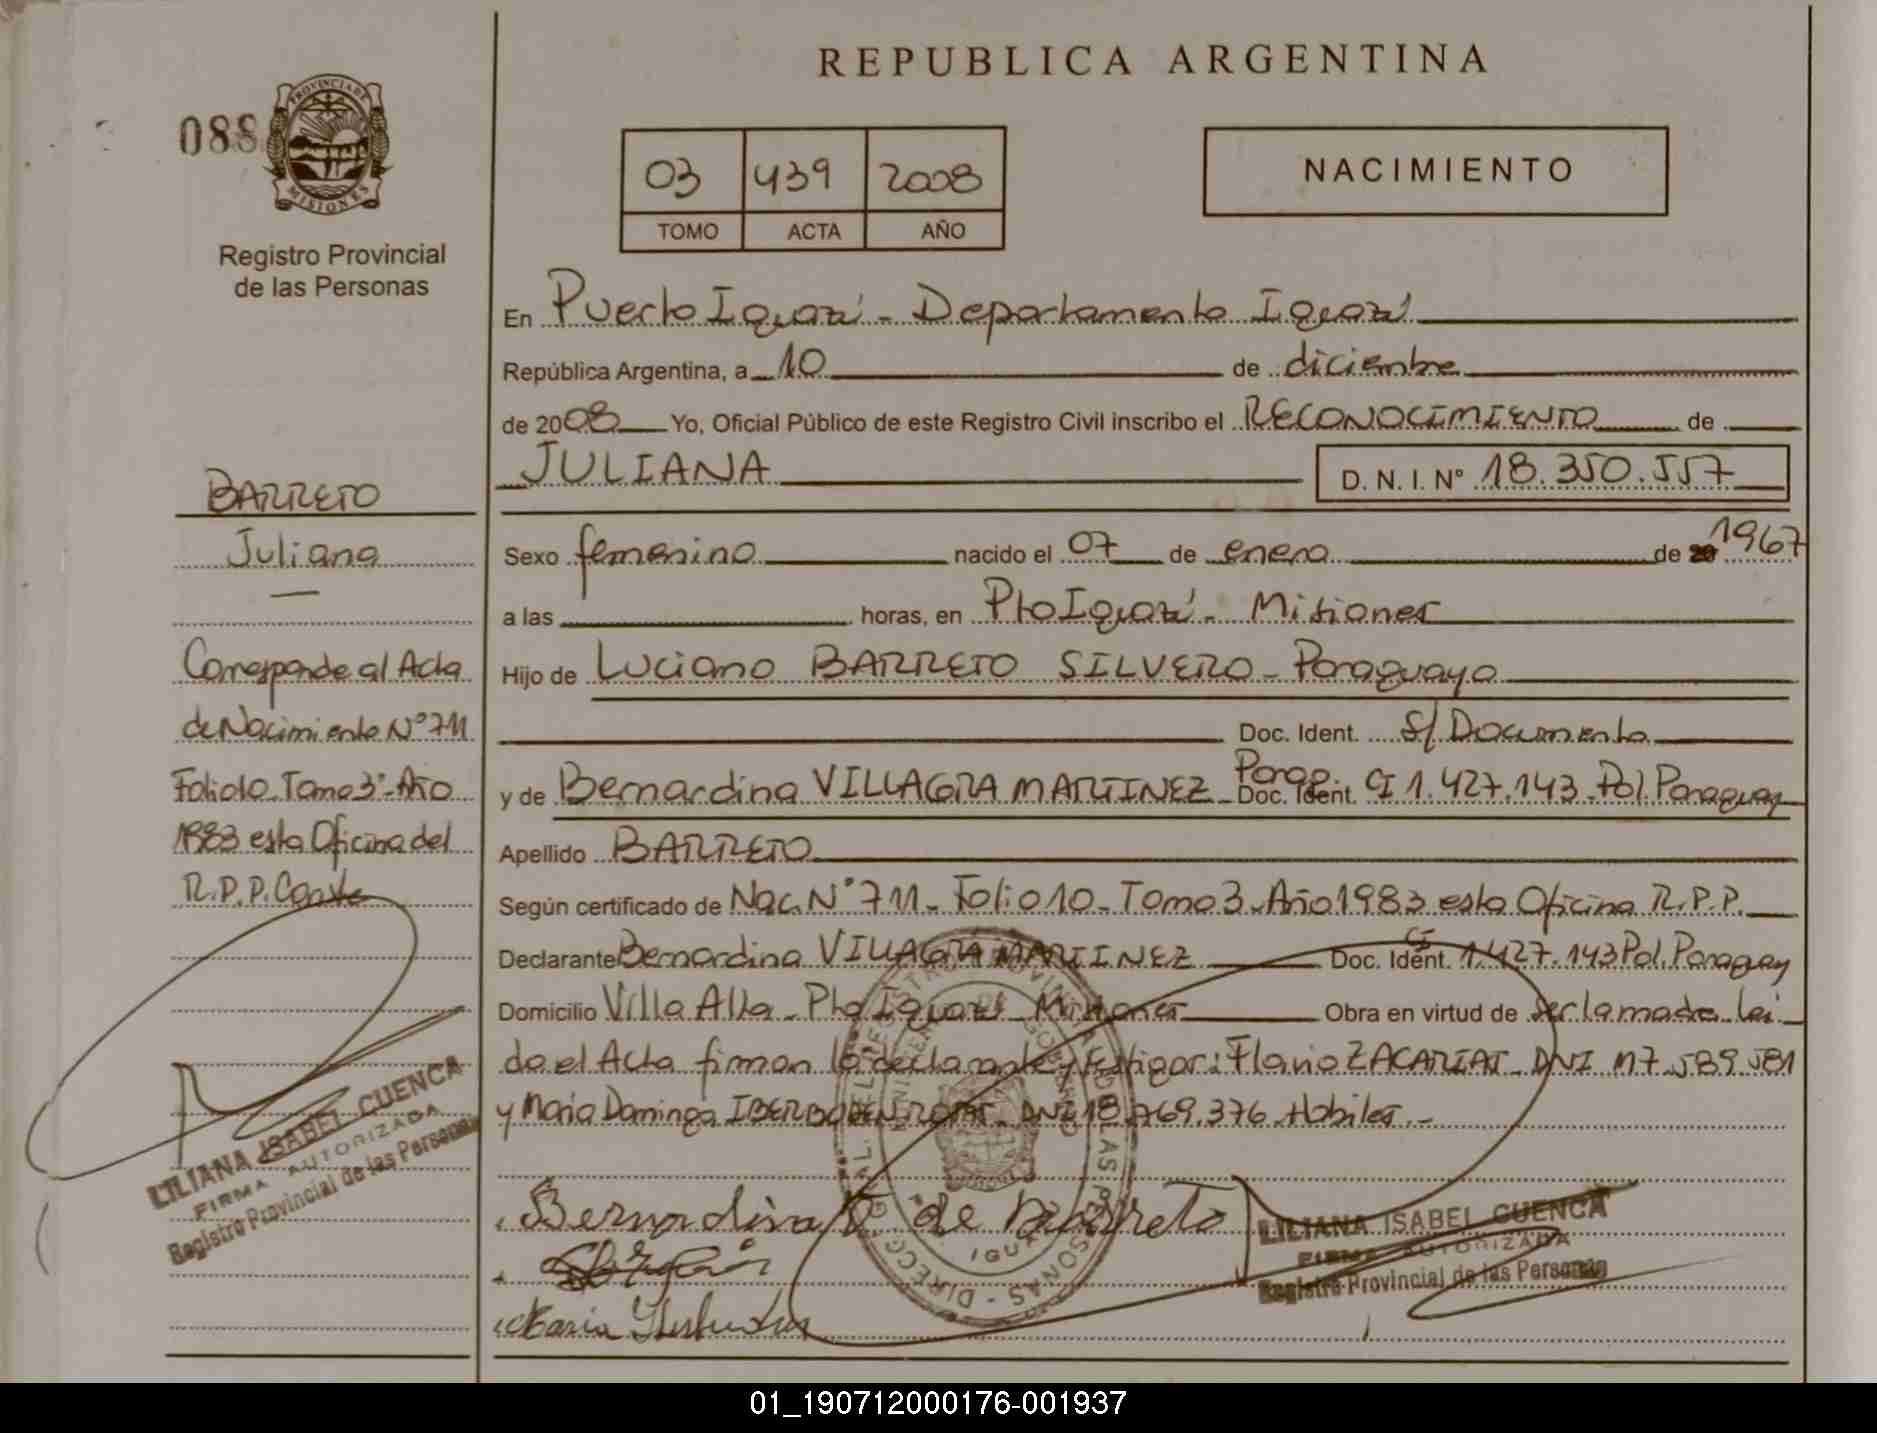 REPUBLICA ARGENTINA
088
PROVINCIA DE
MISIONES
Registro Provincial
de las Personas
03 439 2008
TOMO ACTA AÑO
NACIMIENTO
En Puerto Iguazú - Departamento Iguazú
República Argentina, a 10 de diciembre
de 2008 Yo, Oficial Público de este Registro Civil inscribo el RECONOCIMIENTO de
JULIANA D. N. I. Nº 18.350.557
Sexo femenino nacido el 07 de enero de 1967
a las horas, en Pto Iguazú - Misiones
Hijo de Luciano BARRETO SILVERO - Paraguayo
Doc. Ident. S/ Documento
y de Bernardina VILLAGRA MARTINEZ - Parag. Doc. Ident. CI 1.427.143 - Pol. Paraguay
Apellido BARRETO
Según certificado de Nac. Nº 711 - Folio 10 - Tomo 3 - Año 1983 esta Oficina R.P.P.
Declarante Bernardina VILLAGRA MARTINEZ Doc. Ident. CI 1.427.143 Pol. Paraguay
Domicilio Villa Alta - Pto Iguazú - Misiones Obra en virtud de ser la madre. Lei
do el Acta firman la declarante y testigos: Flavio ZACARIAS - DNI 17.589.581
y Maria Dominga DNI 18.769.376 - Habiles.-
BARRETO
Juliana
Corresponde al Acta
de Nacimiento Nº 711
Folio 10 Tomo 3º - Año
1983 esta Oficina del
R.P.P. Conste
LILIANA ISABEL CUENCA
FIRMA AUTORIZADA
Registro Provincial de las Personas
Bernardina V. de Barreto
Maria
LILIANA ISABEL CUENCA
FIRMA AUTORIZADA
Registro Provincial de las Personas
01_190712000176-001937